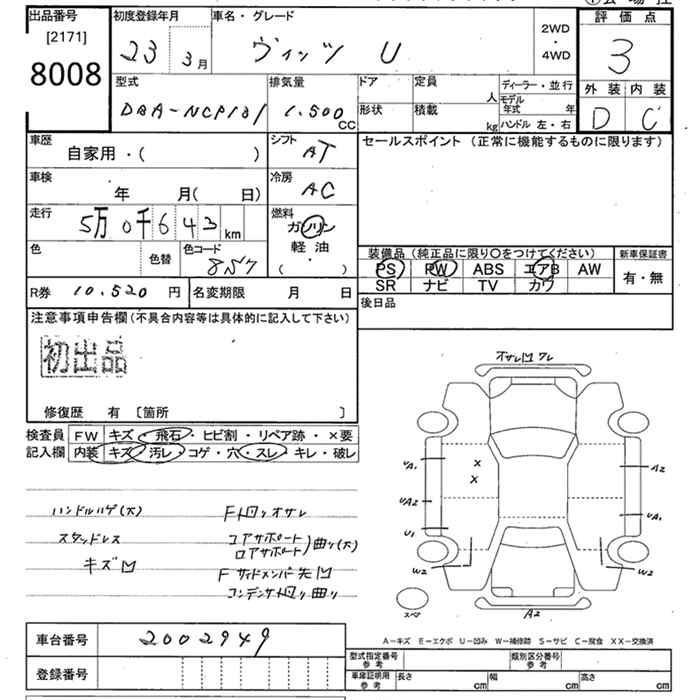 出品番号
[2171]
8008
初度登録年月
23 3月
車名・グレード
ヴィッツ U
2WD
・
4WD
評価点
3
外装 内装
D C
型式
DBA-NCP131
排気量
1.500
CC
ドア
定員
人
形状
積載
kg
ディーラー・並行
モデル
年式 年
ハンドル 左・右
車歴
自家用・( )
シフト
AT
セールスポイント(正常に機能するものに限ります)
車検
年 月( 日)
冷房
AC
走行
5万 0千 6 4 3 km
燃料
ガソリン
軽油
( ・ )
色
色替
色コード
8S7
装備品(純正品に限り○をつけてください)
新車保証書
PS PW ABS エアB AW
SR ナビ TV カワ
有・無
R券 10.520 円
名変期限 月 日
後日品
注意事項申告欄(不具合内容等は具体的に記入して下さい)
初出品
修復歴 有 〔箇所 〕
検査員
記入欄
FW キズ・飛石・ヒビ割・リペア跡・×要
内装 キズ・汚レ・コゲ・穴・スレ・キレ・破レ
ハンドルハゲ(大)
スタッドレス
キズ凹
コアサポート
ロアサポート
曲り(大)
Fサイドメンバー先凹
A2
UA1
UA2
U1
W2
A2
UA1
W2
A2
スペア
A-キズ E-エクボ U-凹み W-補修跡 S-サビ C-腐食 XX-交換済
車台番号 2002949
登録番号
型式指定番号
参考
類別区分番号
参考
車庫証明用
参考
長さ cm
幅 cm
高さ cm